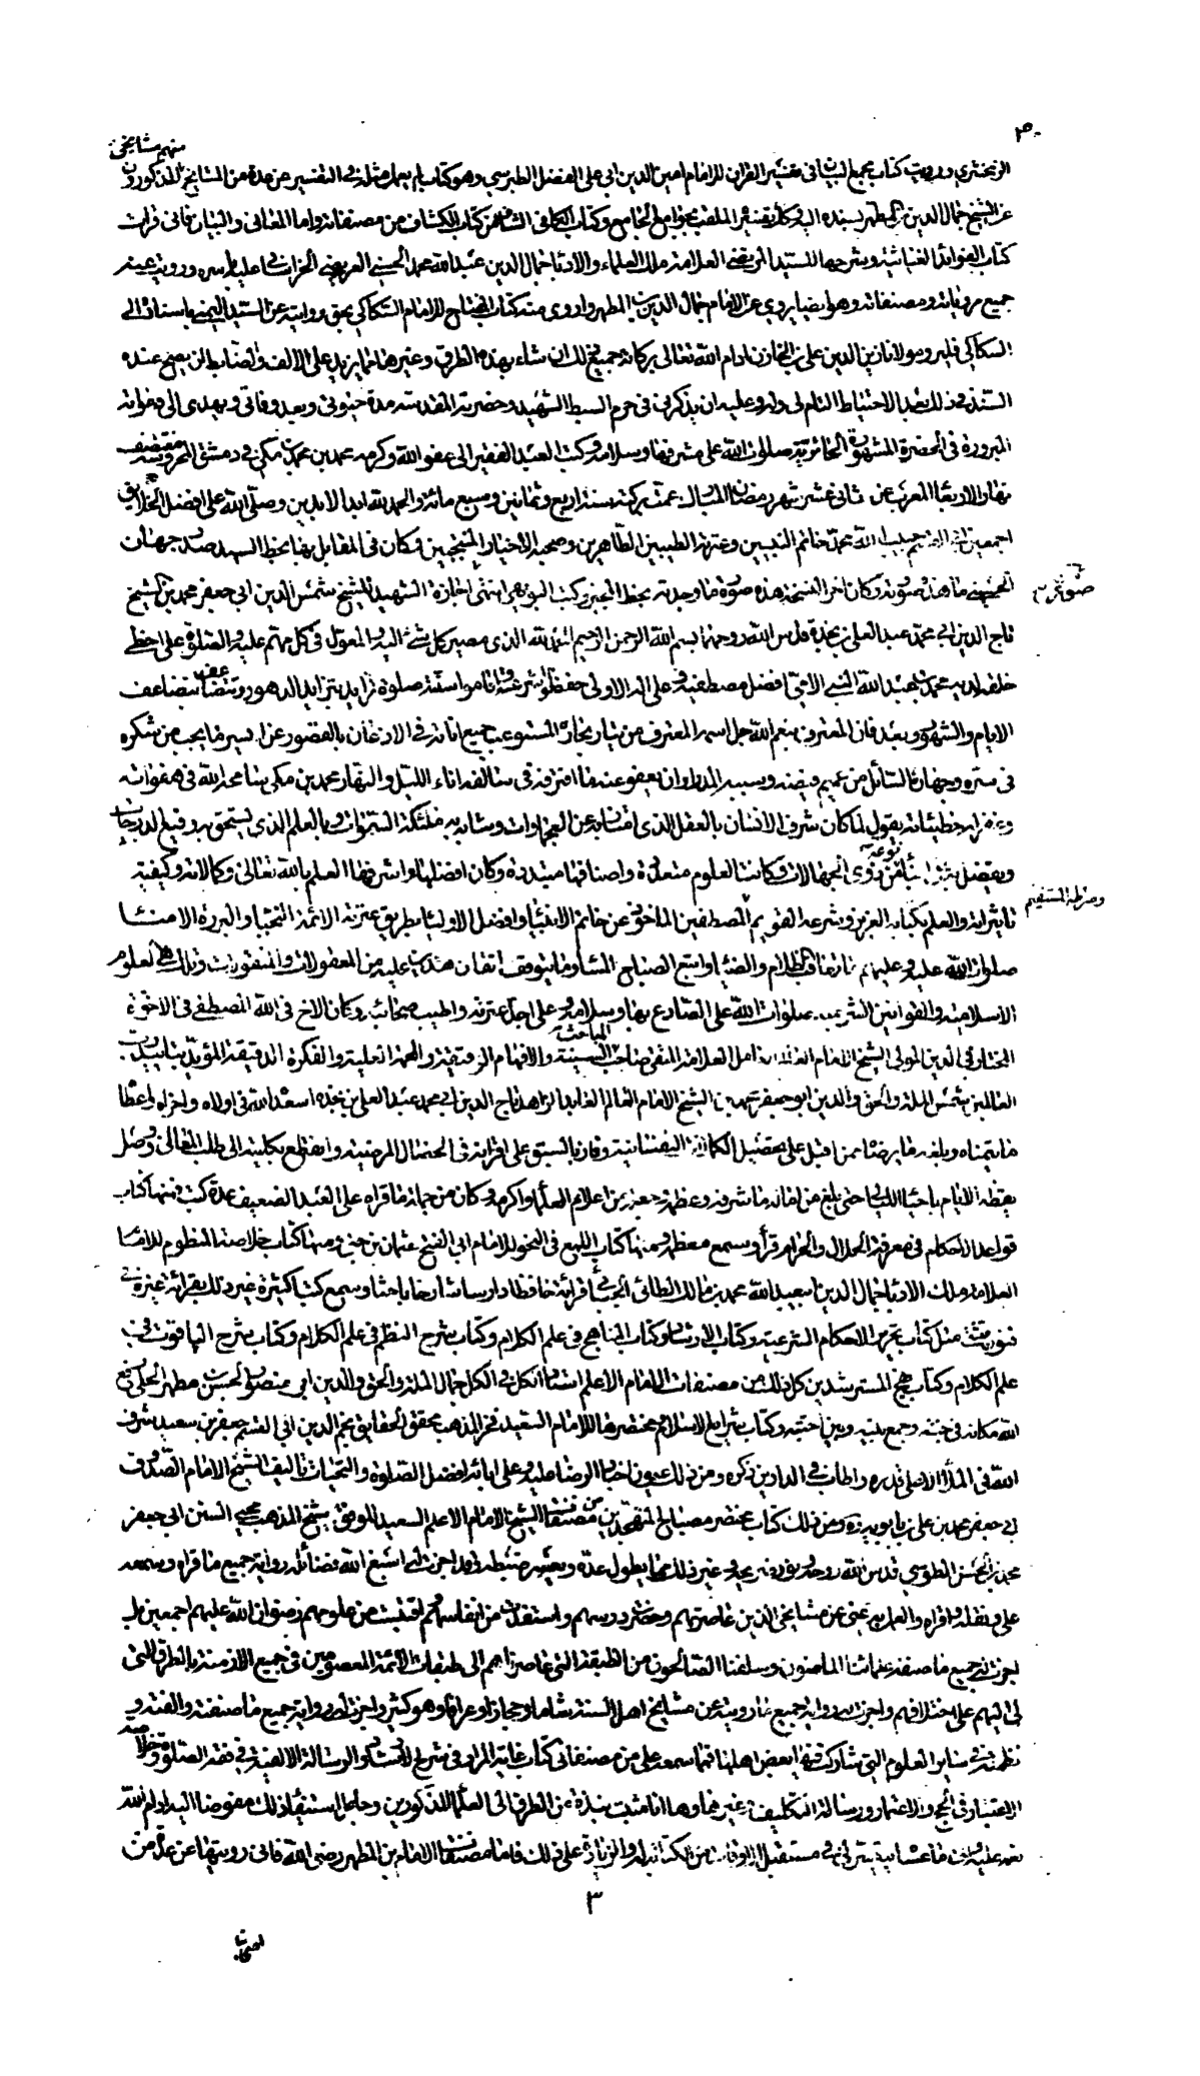 منهم مشايخي
الزمخشري ورويت كتاب مجمع البيان في تفسير القران للامام امين الدين ابي علي الفضل الطبرسي وهو كتاب لم يعمل مثله في التفسير عن عدة من المشايخ المذكورون
عن الشيخ جمال الدين بن المطهر بسنده اليه وكذا تفسيره الملقب بجوامع الجامع وكتاب الكافي الشاف من كتاب الكشاف من مصنفاته واما المعاني والبيان فاني قرات
كتاب الفوائد الغياثية وشرحها للسيد المرتضى العلامة ملك العلماء والادبا جمال الدين عبد الله محمد الحسيني العريضي الخراساني عليه باسره ورويت عنه
جميع مروياته ومصنفاته وهو ايضا يروي عن الامام جمال الدين بن المطهر واروي عنه كتاب المفتاح للامام السكاكي بحق روايته عن السيد اليمني باسناده الى
السكاكي فليرو مولانا زين الدين علي بن الخازن ادام الله تعالى بركاته جميع ذلك ان شاء بهذه الطرق وغيرها مما يزيد على الالف والضابط ان يصح عنده
السند في ذلك بعد الاحتياط التام لي وله وعليه ان يذكرني في حرم السبط الشهيد وحضرته المقدسة مدة حيوتي وبعد وفاتي ويهدي الى دعواته
المبرورة في الحضرة المشهورة الحائرية صلوات الله على مشرفها وسلامه وكتب العبد الفقير الى عفو الله وكرمه محمد بن محمد بن مكي في دمشق المحروسة منتصف
نهار الاربعا المعرب عن ثاني عشر شهر رمضان المبارك عمت بركته سنة اربع وثمانين وسبع مائة والحمد لله ابد الابدين وصلى الله على افضل الخلايق
اجمعين حبيب الله محمد خاتم النبيين وعترته الطيبين الطاهرين وصحبه الاخيار المنتجبين وكان في المقابل بها بخط السيد
صورته وكان اخر النسخة هذه صورة ما وجدته بخط المجيز وكتب انتهى اجازة الشهيد للشيخ شمس الدين ابي جعفر محمد بن الشيخ
تاج الدين ابي محمد عبد العلي بن نجدة قدس الله روحهما بسم الله الرحمن الرحيم الحمد لله الذي مصير كل شيء اليه والمعول في كل مهم عليه والصلوة على
محمد بن عبد الله النبي الامي افضل مصطفيه وعلى اله الاولى حفظوا شرعته واقاموا سنته صلوة تزايد بتزايد الدهور وتتضاعف بتضاعف
الايام والشهور وبعد فان المعترف بنعم الله جل اسمه المغترف من تيار بحاره المستوعب جميع اناته في الاذعان بالقصور عن ايسر ما يجب من شكره
في سره وجهاره السائل من عميم فيضه وسيبه المدرار ان يعفو عنه ما اقترفه في سالف اناء الليل والنهار محمد بن مكي سامحه الله في هفواته
وغفر له خطيئاته يقول لما كان شرف الانسان بالعقل الذي امتاز به عن العجماوات وشابه به ملئكة السموات وبالعلم الذي يستحق به رفيع الدرجات
ويفضل من ذوي الجهالات وكانت العلوم متعددة واصنافها متبددة وكان افضلها واشرفها العلم بالله تعالى وكمالاته وكيفية
تاثيراته والعلم بكتابه العزيز وشرعه القويم الماخوذ عن خاتم الانبياء وافضل الاوليا بطريق عترته الائمة النجباء البررة الامناء
وصراطه المستقيم
صلوات الله عليه وعليهم ما تعاقب الظلام والضياء واتبع الصباح المساء وما يتوقف اتقان هذين عليه من المعقولات والمنقولات وتلك هي العلوم
الاسلامية والقوانين الشرعية صلوات الله على الصادع بها وسلامه وعلى اجل عترته واطيب صحابته وكان الاخ في الله المصطفى في الاخوة
المختار في الدين المولى الشيخ الامام العلامة التقي صاحب المباحث السنية والافهام الرقيقة والهمة العلية والفكرة الدقيقة المؤيد بتاييد رب
العالمين شمس الملة والحق والدين ابو جعفر محمد بن الشيخ الامام العالم العابد الزاهد تاج الدين ابي محمد عبد العلي بن نجدة اسعده الله في اولاه واخراه واعطاه
ما يتمناه وبلغه ما يرضاه ممن اقبل على تحصيل الكمالات النفسانية وفاز بالسبق على اقرانه في الخصال المرضية وانقطع بكليته الى طلب المعالي ووصل
يقظة الايام باحياء الليالي حتى بلغ من اماله ما شرفه وعظمه وجعله من اعلام العلماء واكرمه وكان من جملة ما قراه على العبد الضعيف عدة كتب فمنها كتاب
قواعد الاحكام في معرفة الحلال والحرام قراه وسمع معظمه ومنها كتاب اللمع في النحو للامام ابي الفتح عثمان بن جني ومنها كتاب خلاصة المنظوم للامام
العلامة ملك الادبا جمال الدين ابي عبد الله محمد بن مالك الطائي الجياني قرائة حافظا دارسا شارحا باحثا وسمع كتبا كثيرة غير ذلك بقرائة غيره
مثل كتاب تحرير الاحكام الشرعية وكتاب الارشاد وكتاب المناهج في علم الكلام وكتاب شرح النظم في علم الكلام وكتاب شرح الياقوت في
علم الكلام وكتاب نهج المسترشدين كل ذلك من مصنفات الامام الاعلم استاد الكل في الكل جمال الملة والحق والدين ابي منصور الحسن بن مطهر الحلي رفع
الله مكانه في جنته وجمع بينه وبين احبته وكتاب شرايع الاسلام ومختصرها للامام السعيد فخر المذهب محقق الحقايق نجم الدين ابي القسم جعفر بن سعيد شرف
الله في الملا الاعلى قدره واطاب في الدارين ذكره ومن ذلك عيون اخبار الرضا عليه وعلى ابائه افضل الصلوة والتحيات تاليف الشيخ الامام الصدوق
ابي جعفر محمد بن علي بن بابويه ومن ذلك كتاب مختصر مصباح المتهجدين من مصنفات الشيخ الامام الاعلم السعيد الموفق شيخ المذهب محيي السنن ابي جعفر
محمد بن الحسن الطوسي قدس الله روحه ونور ضريحه وغير ذلك مما يطول عده ويعسر ضبطه وقد اجزت له اسبغ الله فضائله رواية جميع ما قراه وسمعه
علي ونقله واقراه والعمل به عني عن مشايخي الذين عاصرتهم وحضرت دروسهم واستفدت من انفاسهم واقتبست من علومهم رضوان الله عليهم اجمعين بل
اجزت له جميع ما صنفه علماؤنا الماضون وسلفنا الصالحون من الطبقة التي عاصرناهم الى طبقات الائمة المعصومين في جميع الازمنة بالطرق التي
لي اليهم على اختلافهم واجزت له رواية جميع ما رويته عن مشايخ اهل السنة شاما وحجازا وعراقا وهو كثير واجزت له رواية جميع ما صنفته والفته و
نظمته في ساير العلوم التي شاركت فيها بعض اهلها فمما سمعه علي من مصنفاتي كتاب غاية المراد في شرح الارشاد والرسالة الالفية في فقه الصلوة وخلاصة
الاعتبار في الحج والاعتمار ورسالة التكليف وغيرهما وها انا مثبت نبذة من الطرق الى العلماء المذكورين وجاعل استيفاء ذلك مفوضا اليه ادام الله
نعمه عليه ما عساه يتيسر لي في مستقبل الاوقات من الكتابة له والزيادة على ذلك فاما مصنفات الامام بن المطهر رضي الله فاني رويتها عن عدة من
٣
اصحابنا